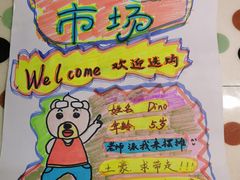 市场
Welcome 欢迎选购
姓名 Dino
年龄: 5岁
老师派我来摆摊
土豪 求带走!!!